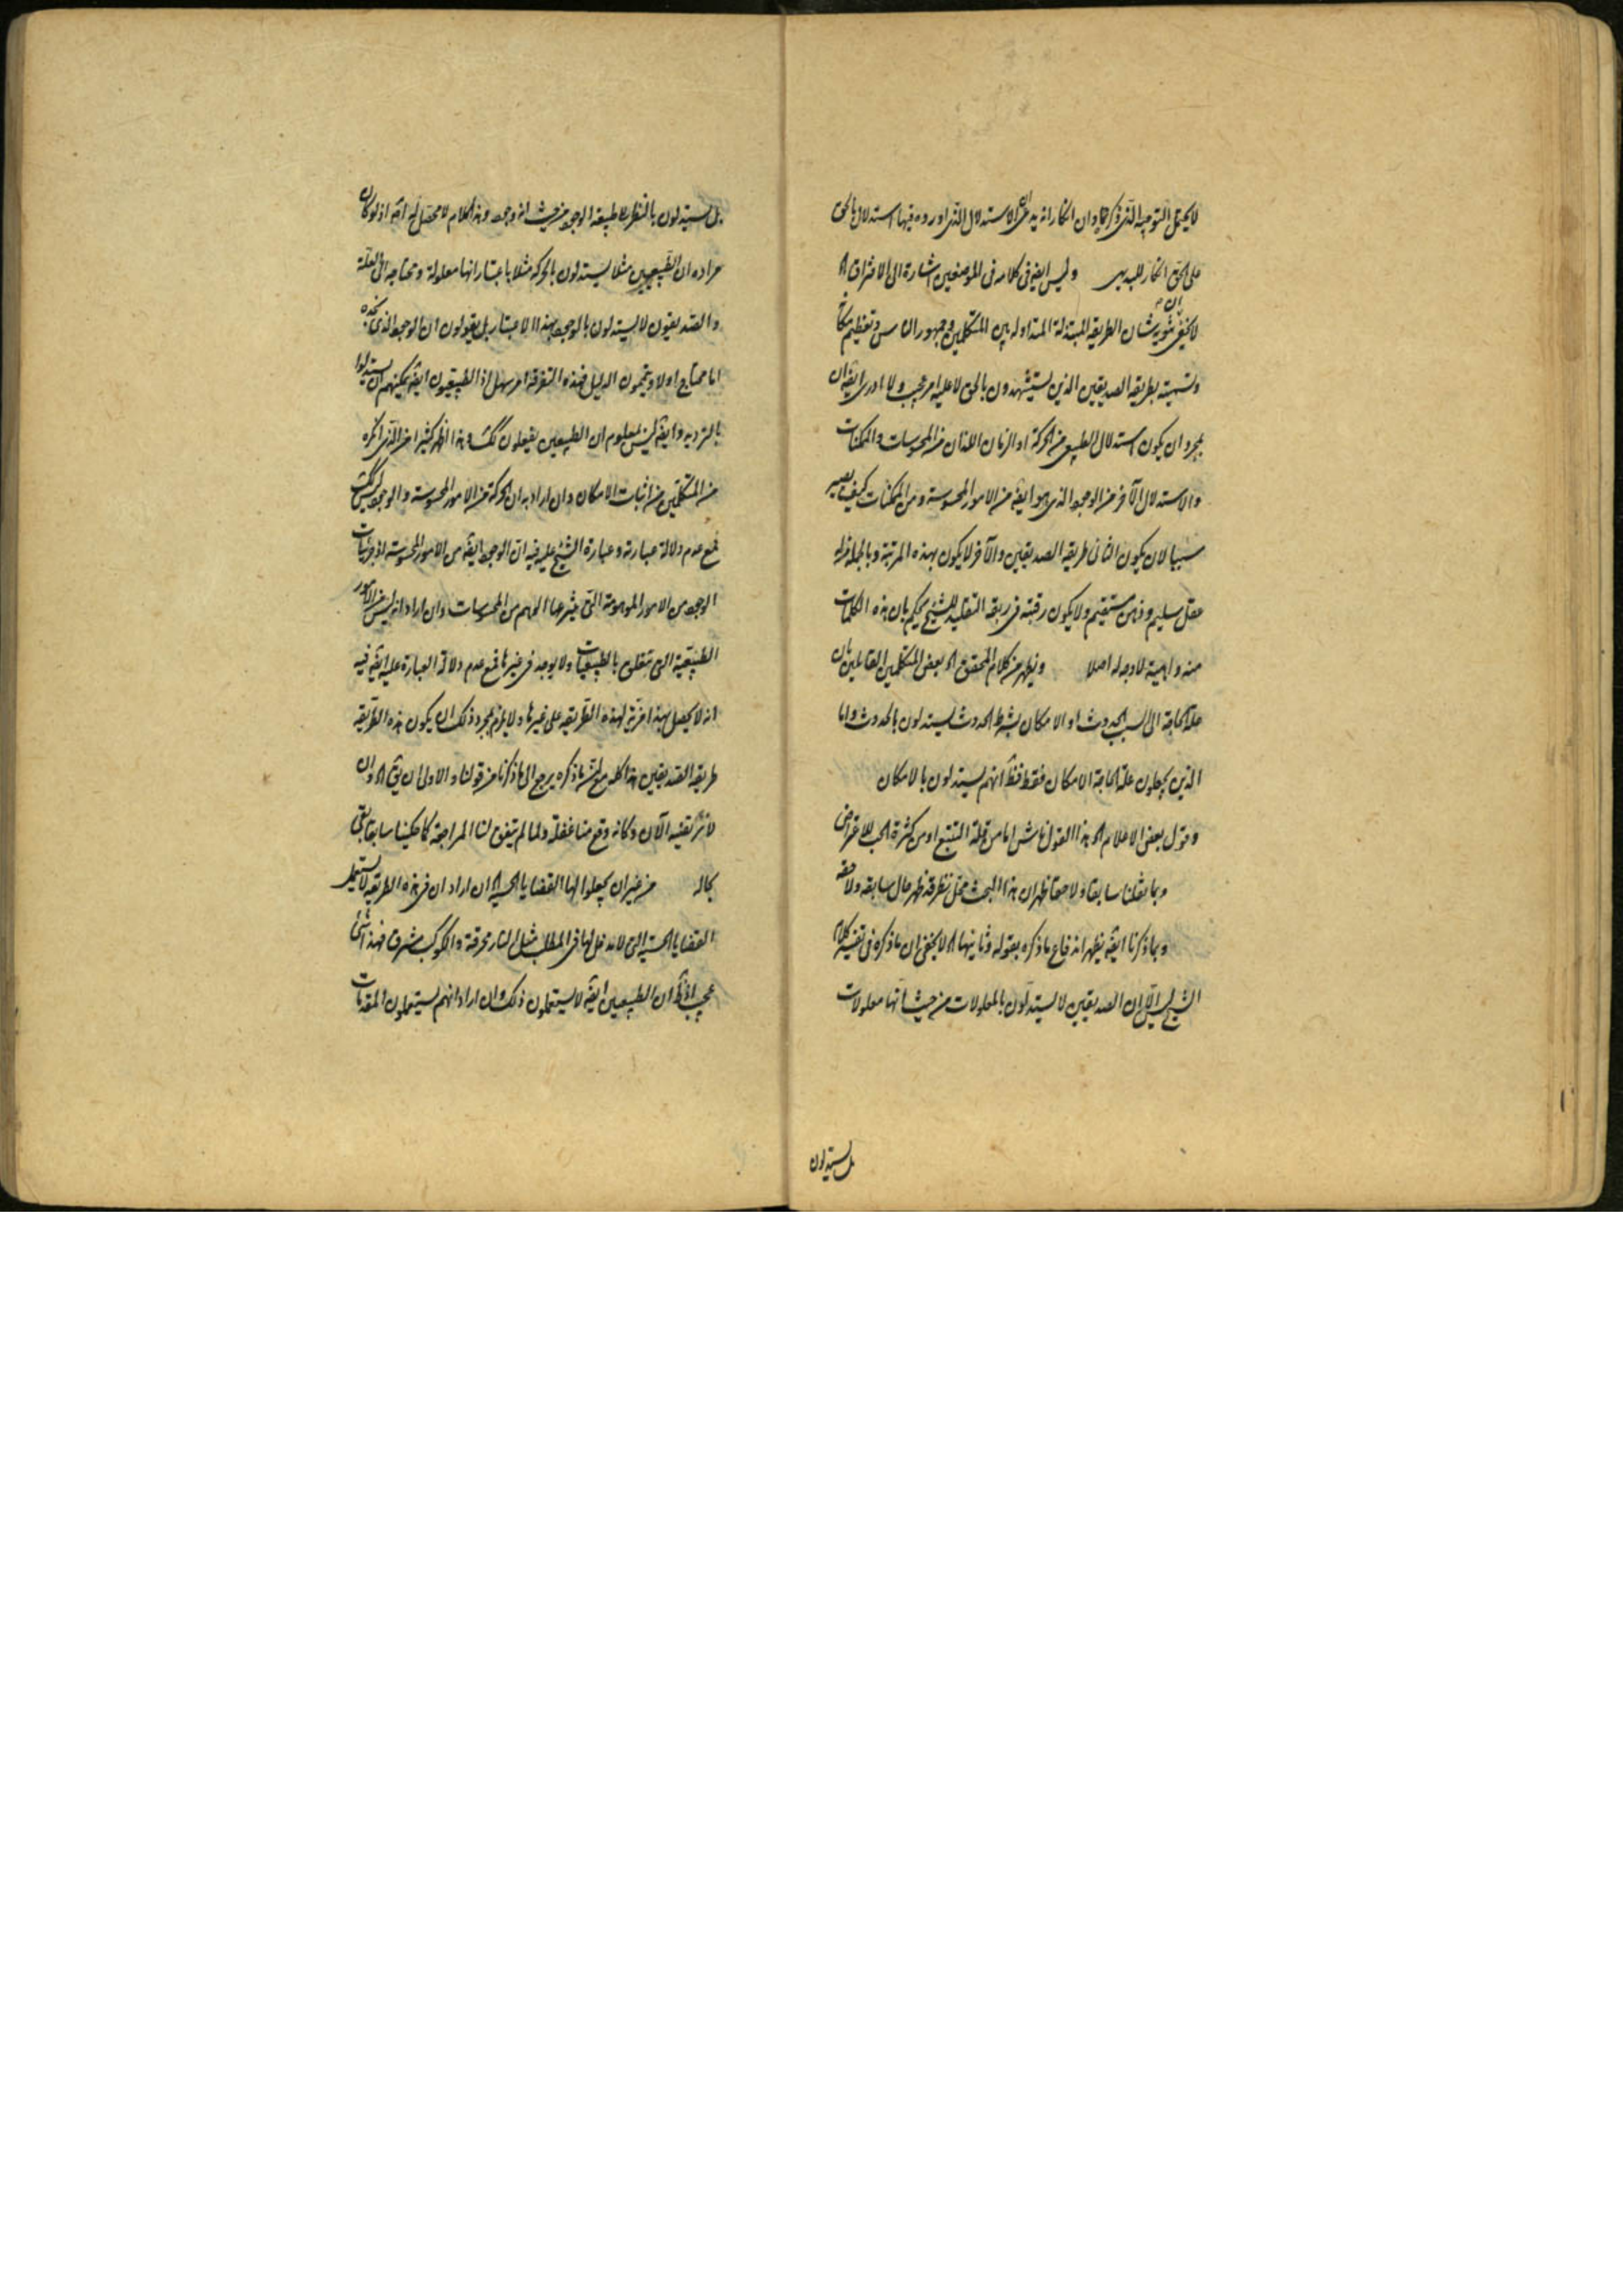 لا يحتمل التوجيه الذي ذكر وان انكار انه يدعي الاستدلال الذي اورده فيها استدلال بالحق
على الحق انكار للبديهي وليس ايضا في كلامه في الموضعين اشارة الى الافتراق اه
لا يخفى ان تنويه شان الطريقة المبتذلة المتداولة بين المتكلمين وجمهور الناس وتعظيم
وتسميته بطريقة الصديقين الذين يستشهدون بالحق لا عليه امر عجيب ولا ادري ايضا ان
بمجرد ان يكون استدلال الطبيعي من الحركة او الزمان اللذان من المحسوسات والممكنات
والاستدلال الآخر من الوجود الذي هو ايضا من الامور المحسوسة ومن الممكنات كيف يصير
سببا لان يكون الثاني طريقة الصديقين والآخر لا يكون بهذه المرتبة وبالجملة من له
عقل سليم وذهن مستقيم ولا يكون رقبته في ربقة التقليد للشيخ يحكم بان هذه الكلمات
منه واهية لا وجه له اصلا ويظهر من كلام المحقق اه بعض المتكلمين القائلين بان
علة الحاجة الى السبب الحدوث او الامكان بشرط الحدوث يستدلون بالحدوث واما
الذين يجعلون علة الحاجة الامكان فقط فظ انهم يستدلون بالامكان
وقول بعض الاعلام اه هذا القول ناش اما من قلة التتبع او من كثرة الحب للاعتراض
وبما نقلنا سابقا ولاحقا ظهر ان هذا البحث محل نظر قد ظهر حال سابقه ولاحقه
وبما ذكرنا ايضا يظهر اندفاع ما ذكره بقوله وثانيها اه لا يخفى ان ما ذكره في تفسير كلام
الشيخ ليس الا ان الصديقين لا يستدلون بالمعلولات من حيث انها معلولات
بل يستدلون
بل يستدلون بالنظر الى طبيعة الوجود من حيث انه وجود وهذا الكلام لا محصل له اذ لو كان
مراده ان الطبيعيين مثلا يستدلون بالحركة مثلا باعتبار انها معلولة ومحتاجة الى العلة
والصديقون لا يستدلون بالوجود بهذا الاعتبار بل يقولون ان الوجود الذي نجده
اما محتاج او لا ويتمون الدليل فهذه التفرقة امر سهل اذ الطبيعيون ايضا يمكنهم ان يستدلوا
بالترديد وايضا ليس بمعلوم ان الطبيعيين يفعلون كك وهذا اظهر كثيرا من الذي انكره
من المتكلمين من اثبات الامكان وان اراد به ان الحركة من الامور المحسوسة والوجود ليس كك
فمع عدم دلالة عبارته وعبارة الشيخ عليه فيه ان الوجود ايضا من الامور المحسوسة اذ جزئيات
الوجود من الامور الموهومة التي ينتزعها الوهم من المحسوسات وان اراد انه ليس من الامور
الطبيعية التي تتعلق بالطبيعيات ولا يوجد في غيرها فمع عدم دلالة العبارة عليه ايضا فيه
انه لا يحصل بهذا مزية لهذه الطريقة على غيرها ولا يلزم بمجرد ذلك ان يكون هذه الطريقة
طريقة الصديقين هذا كله مع ان ما ذكره يرجع الى ما ذكرنا من قولنا والاولى ان يق اه وان
لا نر تغييه الآن وكانه وقع منا غفلة ولما لم يتفق لنا المراجعة كما حكينا سابقا بقي
بحاله من غير ان يجعلوا لها القضايا الحسية اه ان اراد ان في هذه الطريقة لا يستعمل
القضايا الحسية التي لا مدخل لها في المطلب مثل النار محرقة والكوكب مشرق فهذا شيء
عجيب اذ ظ ان الطبيعيين ايضا لا يستعملون ذلك وان اراد انهم يستعملون المقدمات